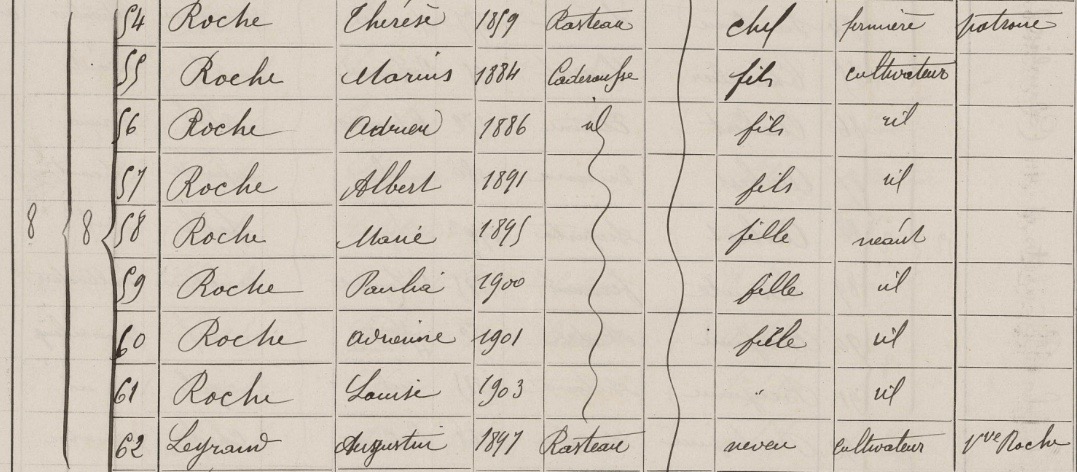 54 Roche Thérèse 1859 Rasteau chef fermière patronne
55 Roche Marius 1884 Caderousse fils cultivateur
56 Roche Adrien 1886 id fils id
57 Roche Albert 1891 fils id
8 8 58 Roche Marie 1895 fille néant
59 Roche Paulia 1900 fille id
60 Roche Adrienne 1901 fille id
61 Roche Louise 1903 " id
62 Leyraud Augustin 1897 Rasteau neveu cultivateur Vve Roche